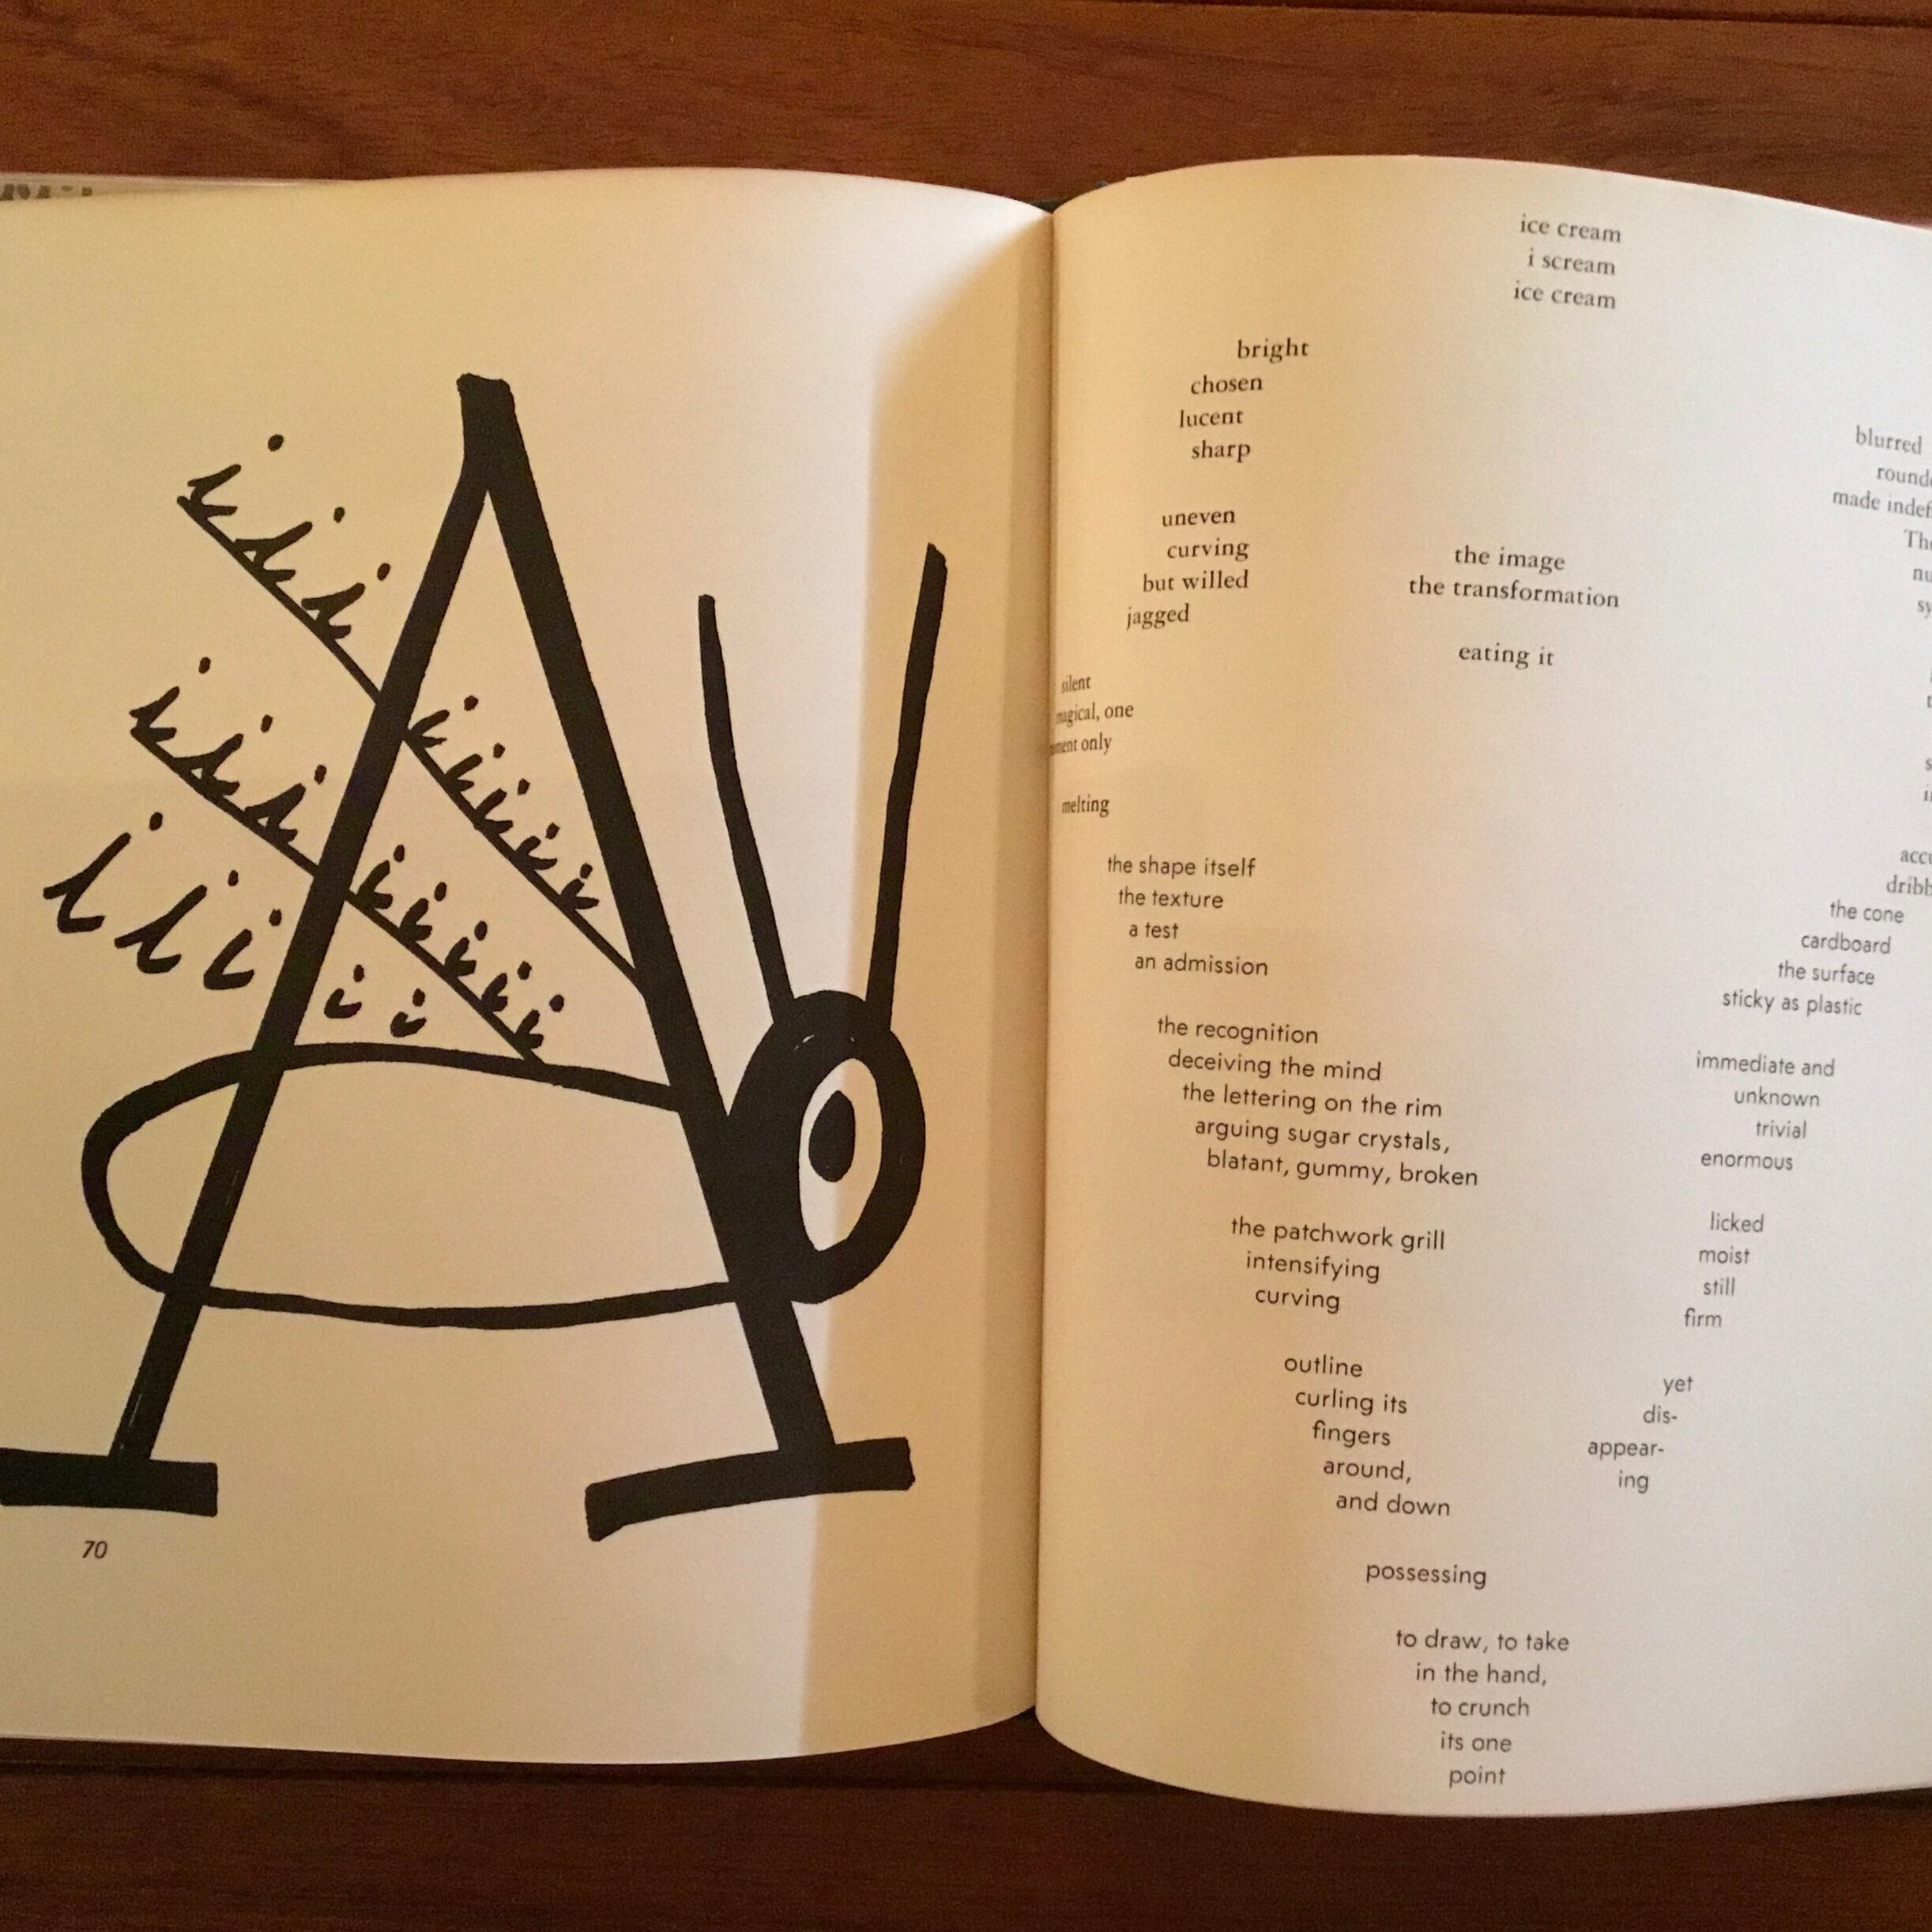 A
i i i i i i i i
i i i i i i i i
i i i i i
70
ice cream
i scream
ice cream
bright
chosen
lucent
sharp
uneven
curving
but willed
jagged
silent
one
only
melting
the shape itself
the texture
a test
an admission
the recognition
deceiving the mind
the lettering on the rim
arguing sugar crystals,
blatant, gummy, broken
the patchwork grill
intensifying
curving
outline
curling its
fingers
around,
and down
possessing
to draw, to take
in the hand,
to crunch
its one
point
the image
the transformation
eating it
blurred
made
the cone
cardboard
the surface
sticky as plastic
immediate and
unknown
trivial
enormous
licked
moist
still
firm
yet
dis-
appear-
ing